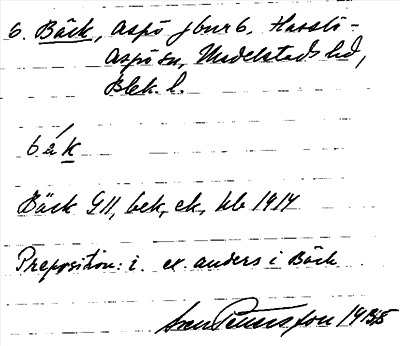 6. Bäck, Aspö jbur 6. Hasslö-
Aspö sn, Medelstads hd,
Blek. l.
bäk
Bäck GII, bek, ek, hb 1914
Preposition: i. ex anders i Bäck
Sven Petersson 1935